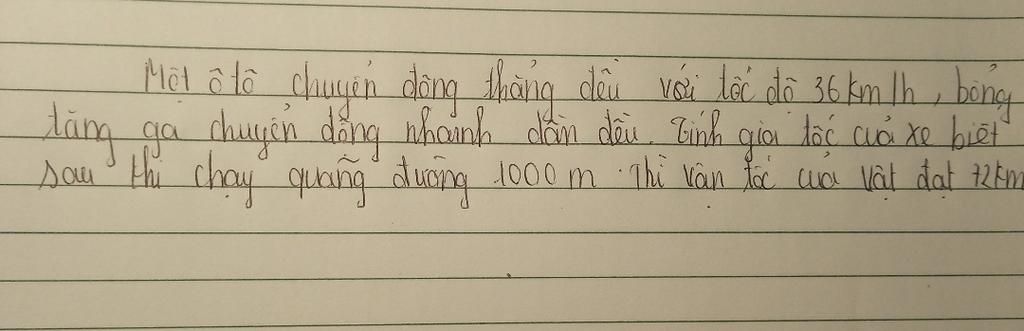 Một ô tô chuyển động thẳng đều với tốc độ 36 km/h, bỗng
tăng ga chuyển động nhanh dần đều. Tính gia tốc của xe biết
sau khi chạy quãng đường 1000 m thì vận tốc của vật đạt 72 km